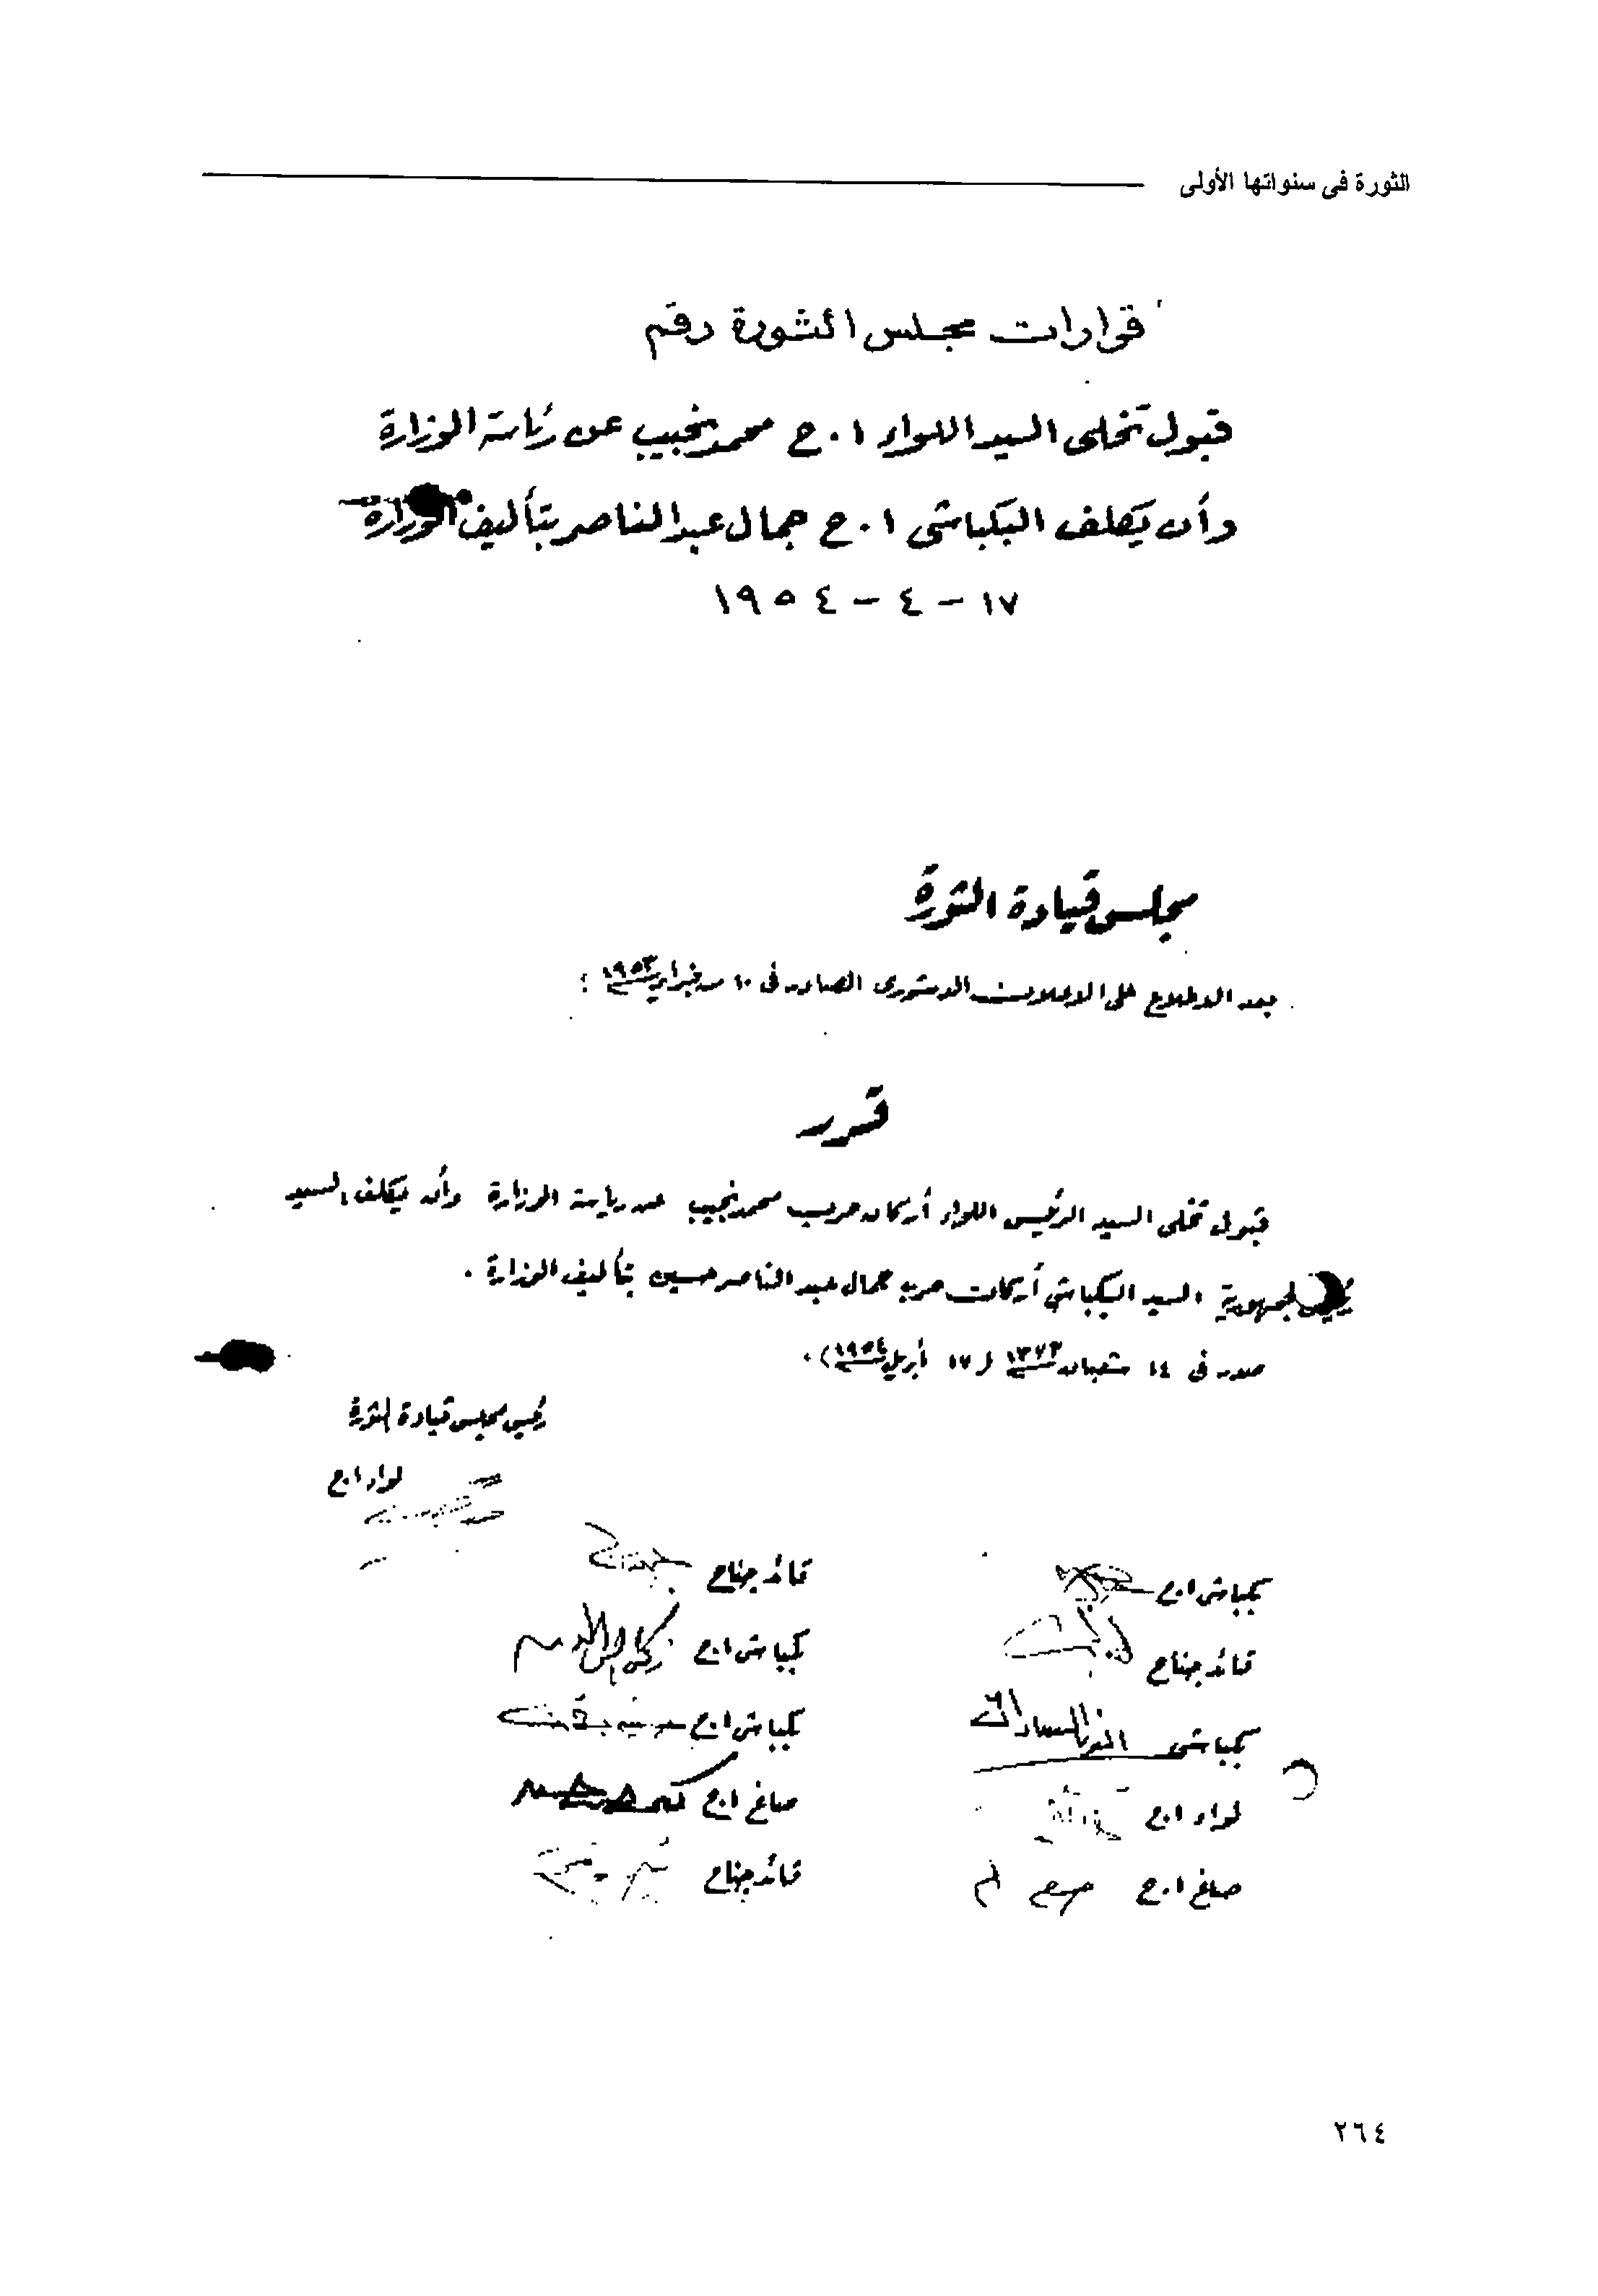 الثورة فى سنواتها الأولى
قرارات مجلس الثورة رقم
قبول تخلى السيد اللواء ا.ح محمد نجيب عن رئاسة الوزارة
وأن يكلف البكباشى ا.ح جمال عبد الناصر بتأليف الوزارة
١٧ - ٤ - ١٩٥٤
مجلس قيادة الثورة
بعد الاطلاع على الاعلان الدستورى الصادر فى ١٠ من فبراير سنة ١٩٥٣ ؛
قرر
قبول تخلى السيد الرئيس اللواء أركان حرب محمد نجيب عن رياسة الوزارة وأن يكلف السيد
رئيس الجمهورية السيد البكباشى أركان حرب جمال عبد الناصر حسين بتأليف الوزارة .
صدر فى ١٤ شعبان سنة ١٣٧٣ (١٧ أبريل سنة ١٩٥٤) .
رئيس مجلس قيادة الثورة
لواء ا.ح
بكباشى ا.ح
قائد جناح
قائد جناح
بكباشى ا.ح زكريا محيى الدين
بكباشى أنور السادات
بكباشى ا.ح
لواء ا.ح
صاغ ا.ح
صاغ ا.ح
قائد جناح
٢٦٤